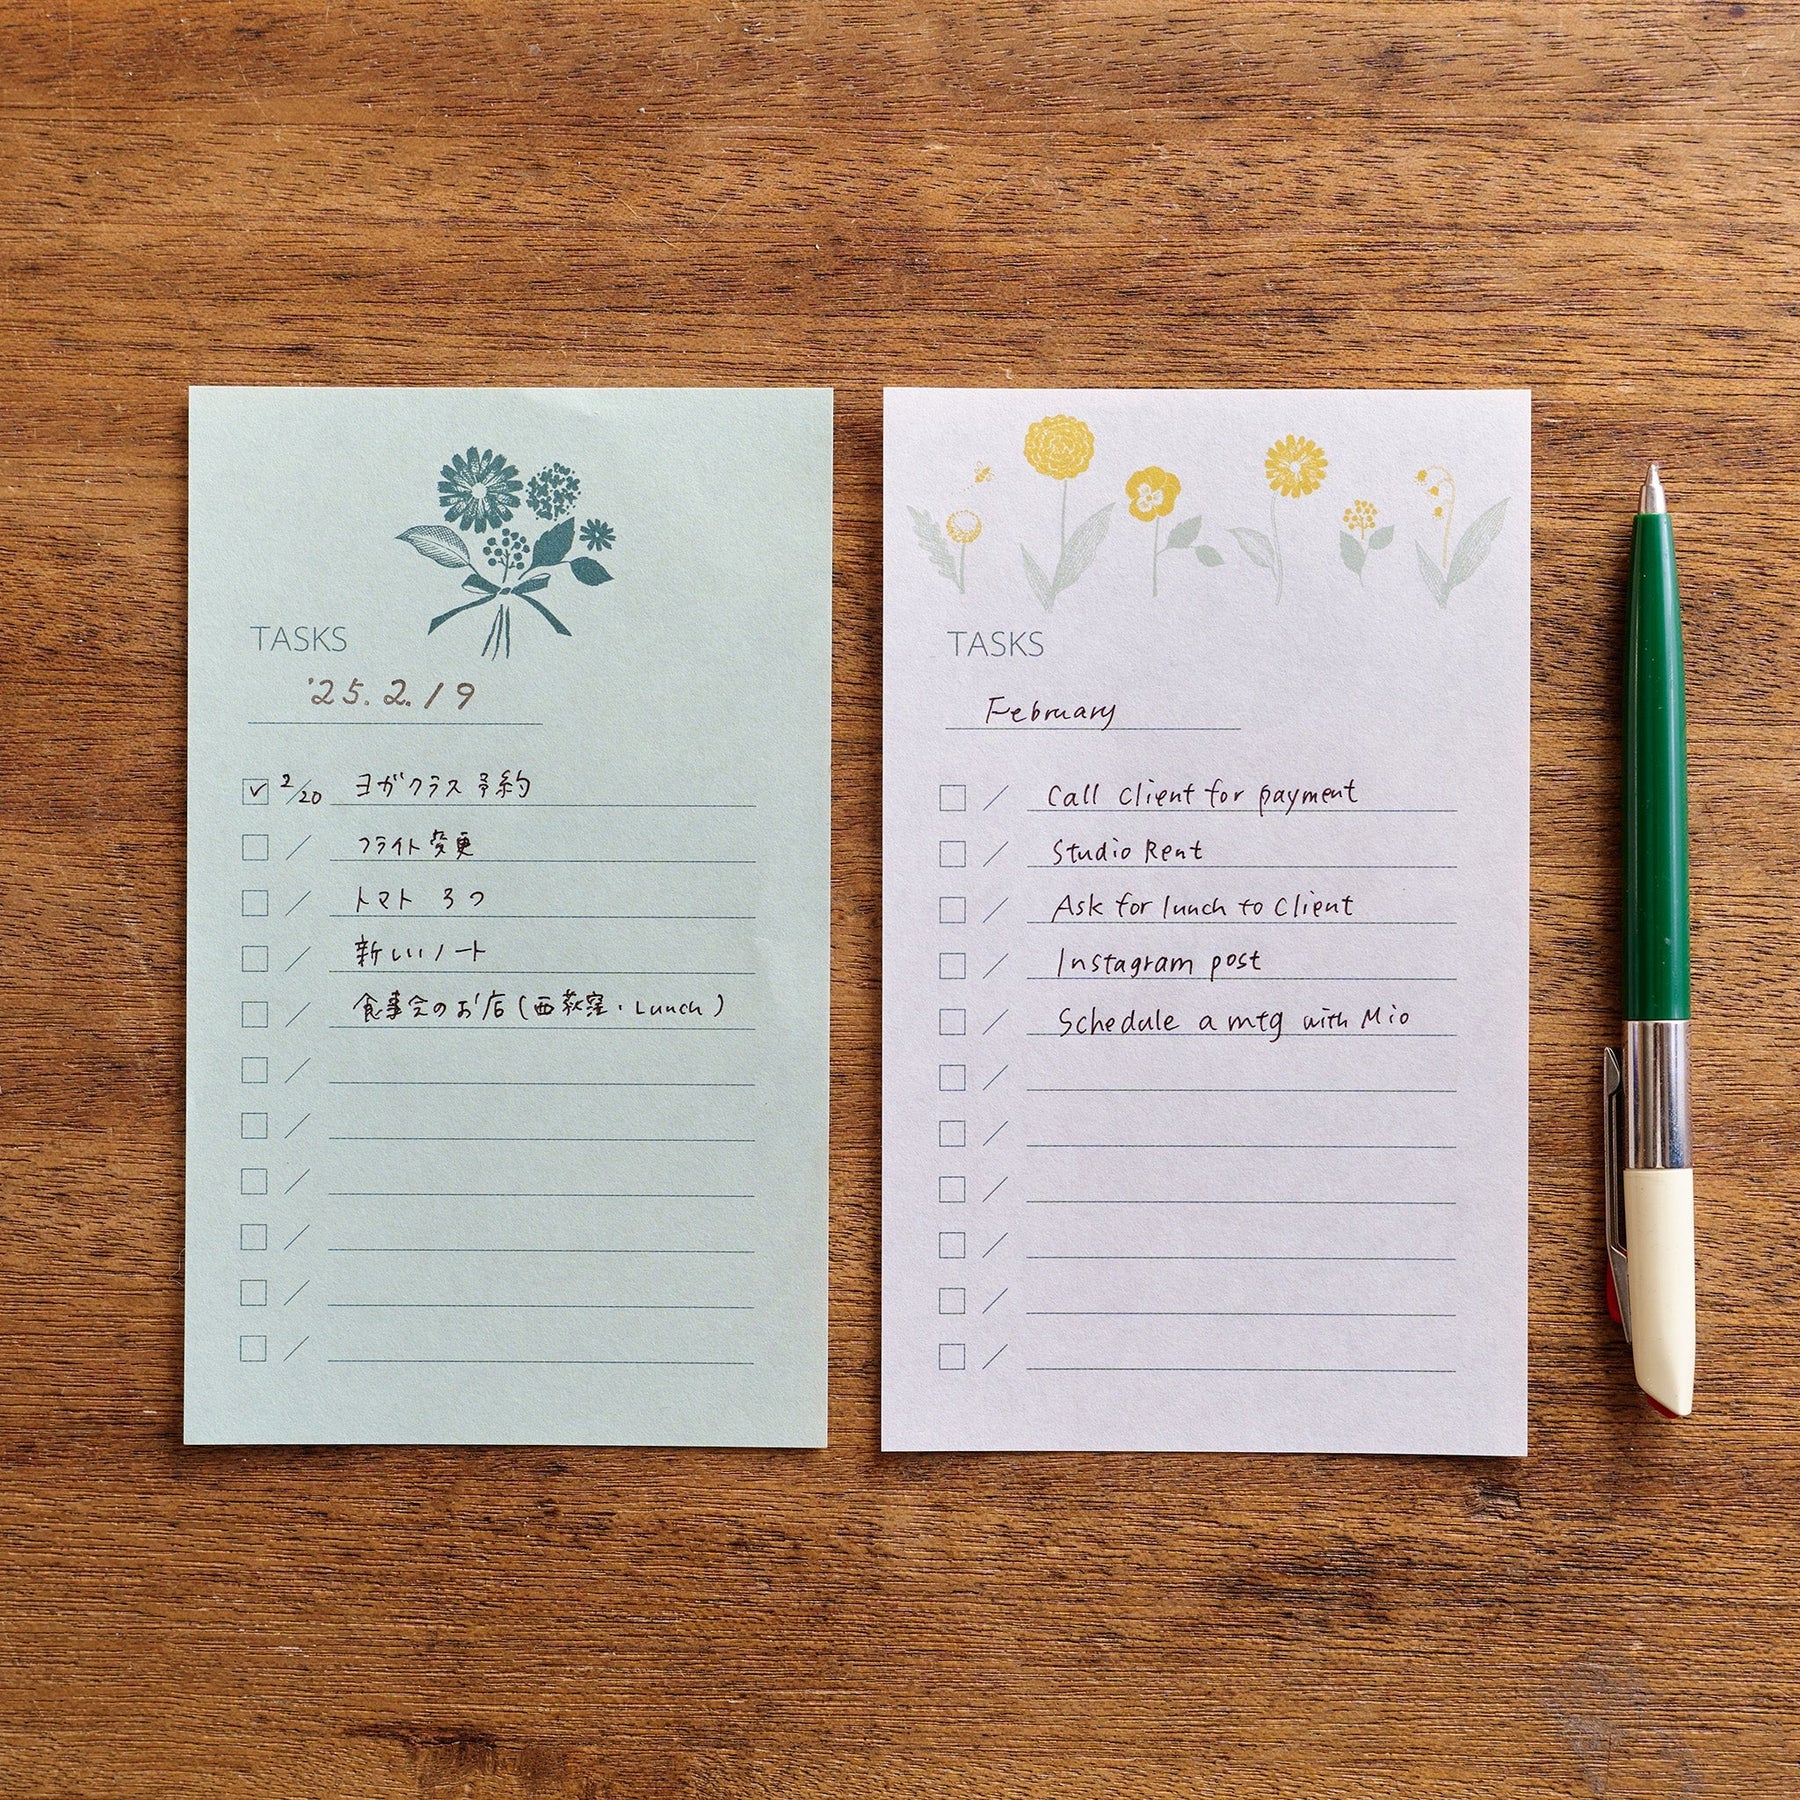 TASKS
'25.2.19
2/20 ヨガクラス予約
フライト変更
トマト 3つ
新しいノート
食事会のお店(西荻窪・Lunch)
TASKS
February
Call Client for payment
Studio Rent
Ask for lunch to Client
Instagram post
Schedule a mtg with Mio